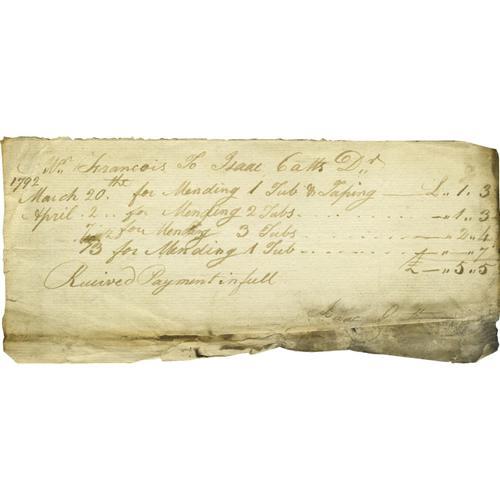 Mr. Francois To Isaac Catts Dr.
1792
March 20th for Mending 1 Tub & Taping — £ " 1 " 3
April 2 .. for Mending 2 Tubs . . . . — " 1 " 3
for Mending 3 Tubs . . . . — " 2 " 4
13 for Mending 1 Tub . . . . — " — " 7
£ — " 5 " 5
Received Payment in full
Isaac